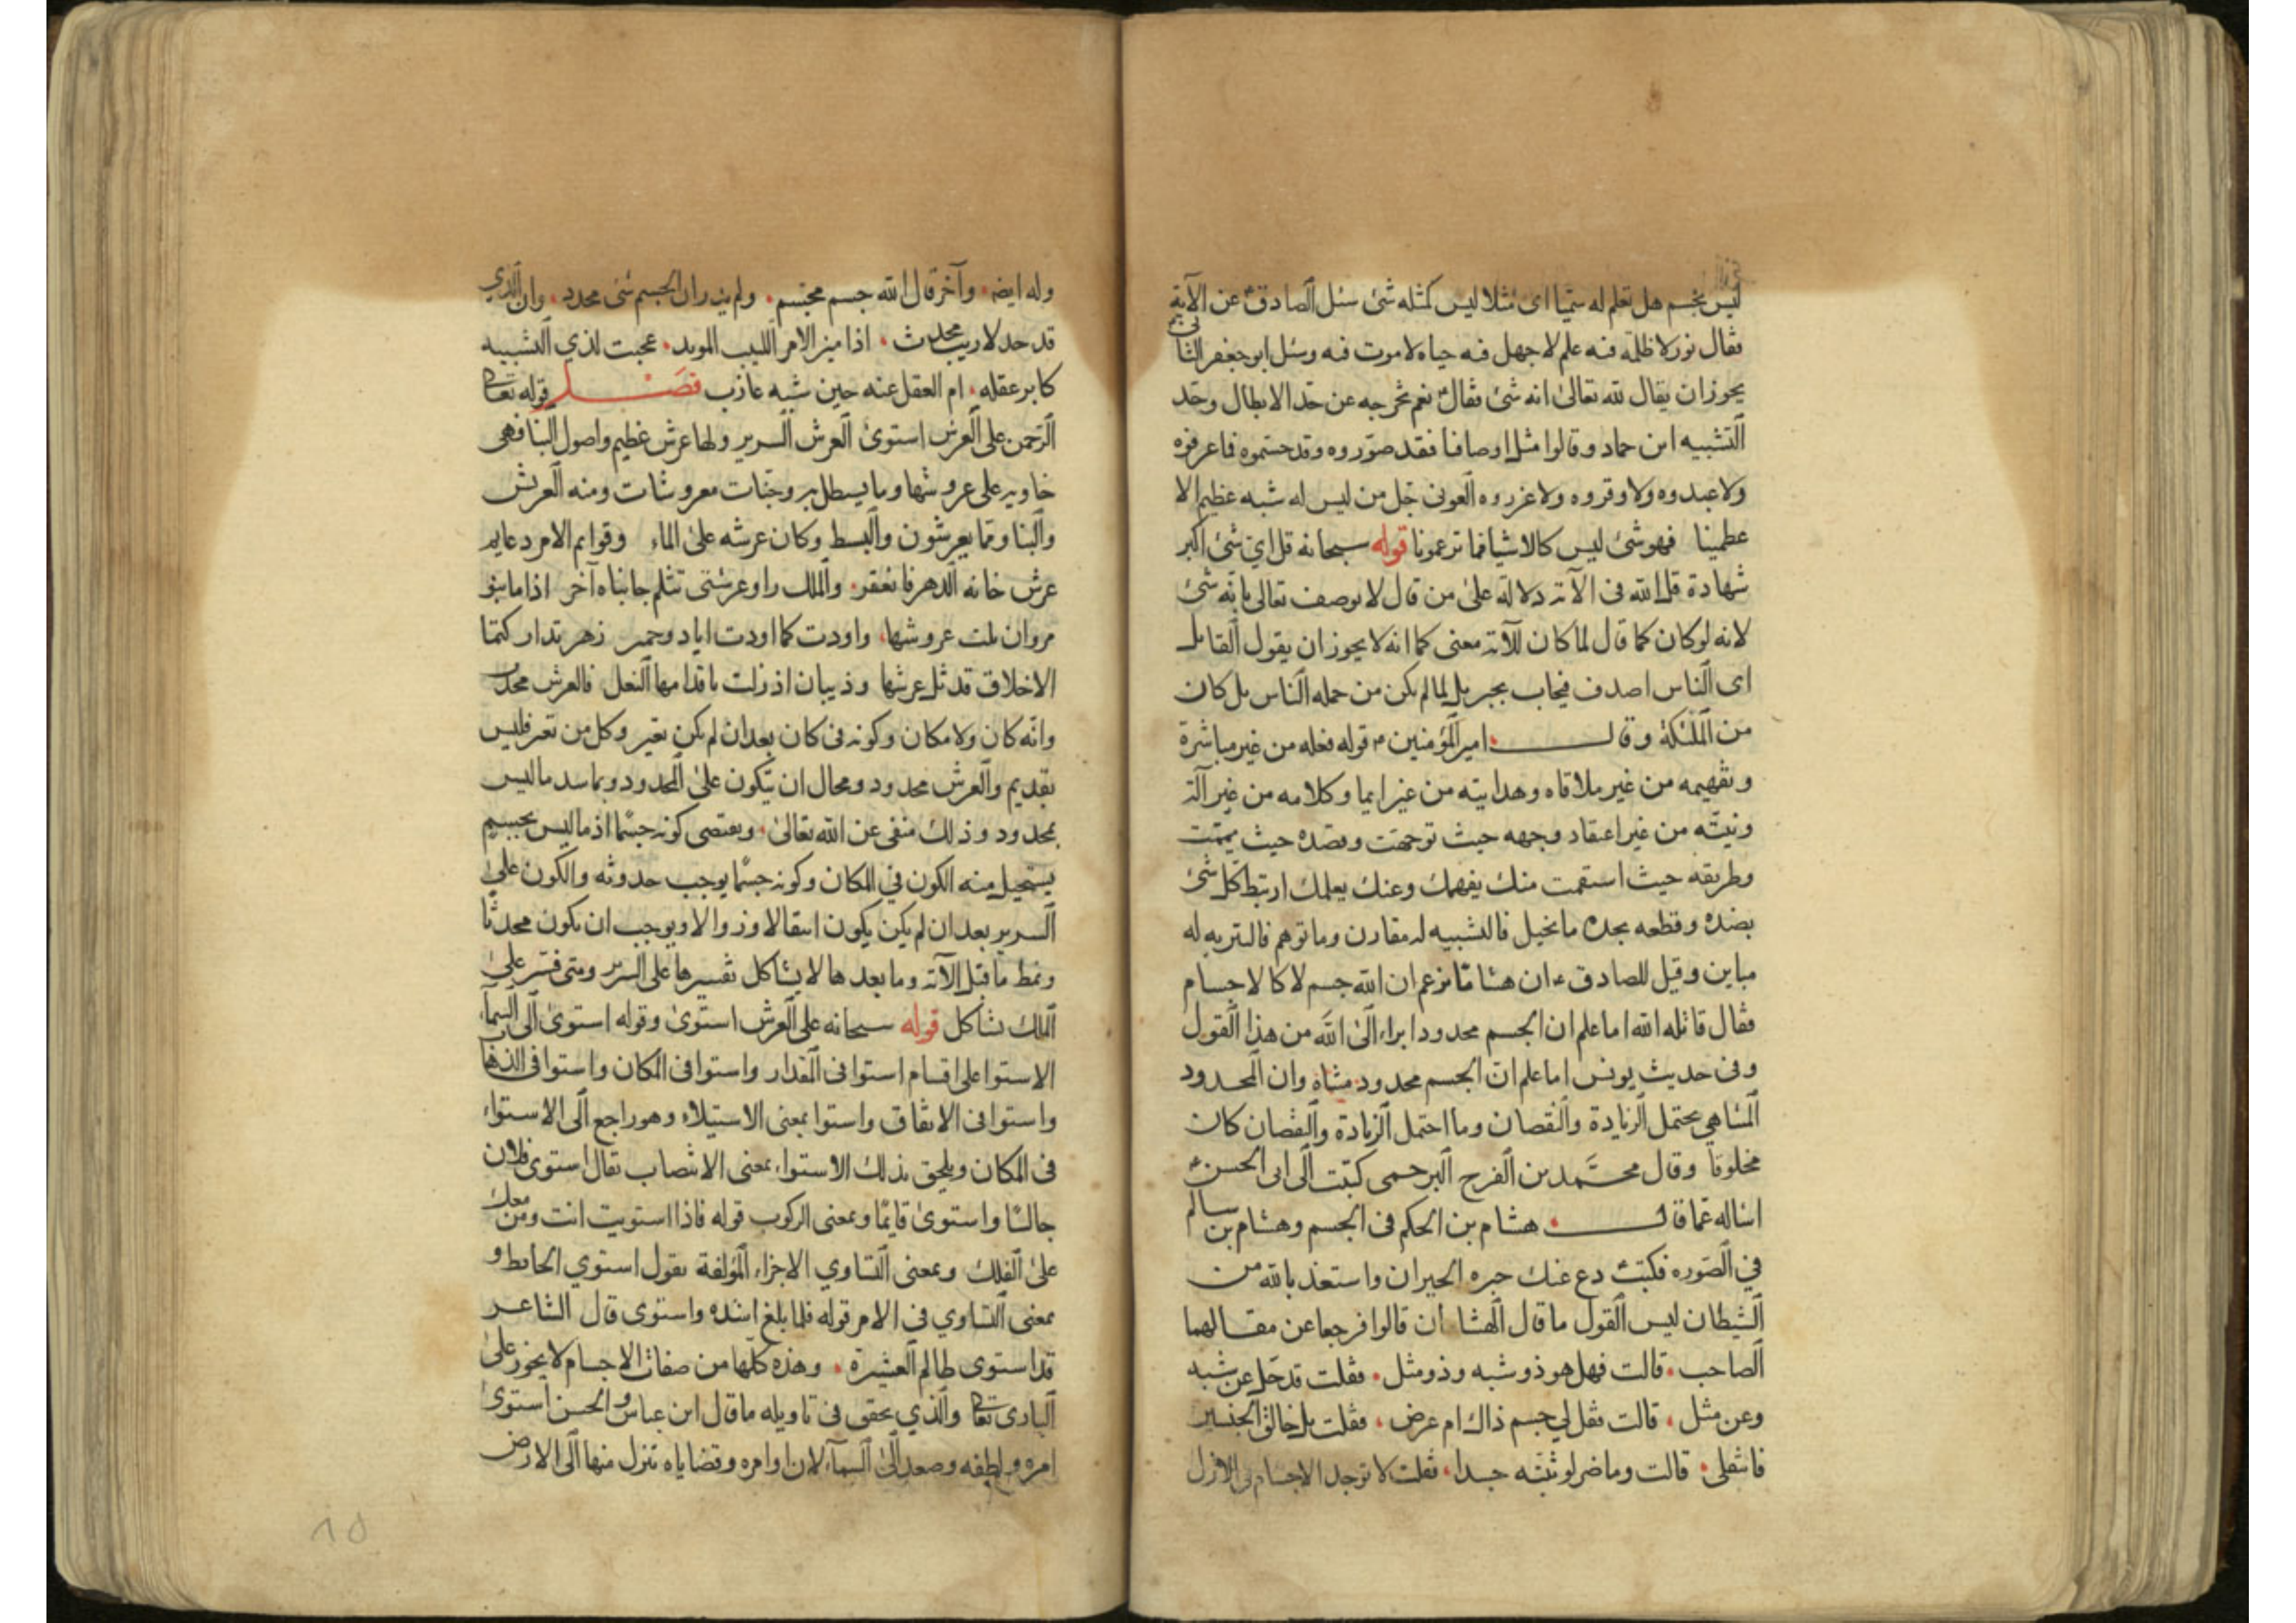 ليس بجسم هل تعلم له سميا اى مثلا ليس كمثله شئ سئل الصادق ع عن الآية
فقال نور لا ظلمة فيه علم لا جهل فيه حياه لا موت فيه وسئل ابو جعفر الثانى
يجوز ان يقال لله تعالى انه شئ فقال نعم تخرجه عن حد الابطال وحد
التشبيه ابن حماد وقالوا مثل اوصافنا فقد صوروه وقد جسموه فما عرفوه
ولا عبدوه ولا وقروه ولا عزروه العونى جل من ليس له شبه عظيم الا
عظمينا فهو شئ ليس كالاشيا فما تزعمونا قوله سبحانه قل اى شئ اكبر
شهادة قل الله فى الآية دلالة على من قال لا يوصف تعالى بانه شئ
لانه لو كان كما قال لما كان للآية معنى كما انه لا يجوز ان يقول القايل
اى الناس اصدف فيجاب بجبريل لما لم يكن من جمله الناس بل كان
من الملئكة وقال امير المؤمنين ع قوله فعله من غير مباشرة
وتفهيمه من غير ملاقاه وهدايته من غير ايما وكلامه من غير آلة
ونيته من غير اعتقاد وجهه حيث توجهت وقصده حيث يممت
وطريقه حيث استقمت منك يفهمك وعنك يعلمك ارتبط كل شئ
بضده وقطعه بحده ما تخيل فالتشبيه له مقارن وما توهم فالتنزيه له
مباين وقيل للصادق ع ان هشاما يزعم ان الله جسم لا كالاجسام
فقال قاتله الله اما علم ان الجسم محدود ابراء الى الله من هذا القول
وفى حديث يونس اما علم ان الجسم محدود متناه وان المحدود
المتناهي يحتمل الزيادة والنقصان وما احتمل الزيادة والنقصان كان
مخلوقا وقال محمد بن الفرج البرحمى كتبت الى ابى الحسن ع
اساله عما قال هشام بن الحكم فى الجسم وهشام بن سالم
في الصوره فكتب دع عنك حيره الحيران واستعذ بالله من
الشيطان ليس القول ما قال الهشامان قالوا فرجعا عن مقالهما
الصاحب قالت فهل هو ذو شبه وذو مثل فقلت قد جل عن شبه
وعن مثل قالت فقل لي جسم ذاك ام عرض فقلت بل خالق الجنسين
فانتقلى قالت وما ضر لو تثبته جسدا فقلت لا توجد الاجسام فى الازل
وله ايضه وآخر قال الله جسم مجسم ولم يدر ان الجسم شئ محدد وان الذي
قد حد لا ريب محدث اذا ميز الامر اللبيب المويد عجبت لذي التشبيه
كابر عقله ام العقل عنه حين شبه عازب فصل قوله تعالى
الرحمن على العرش استوى العرش السرير ولها عرش عظيم واصول البنا فهى
خاويه على عروشها وما يستظل به وجنات معروشات ومنه العريش
والبنا ومما يعرشون والبسط وكان عرشه على الماء وقوايم الامر دعايم
عرش خانه الدهر فانعقر والملك راو عرشى تثلم جانباه آخر اذا ما بنو
مروان ثلت عروشها واودت كما اودت اياد وحمير زهر تداركتما
الاحلاف قد ثل عرشها وذبيان اذ زلت باقدامها النعل فالعرش محدث
وانه كان ولا مكان وكونه فى كان بعد ان لم يكن تغير وكل من تغير فليس
بقديم والعرش محدود ومحال ان يكون على المحدود ويماسه ما ليس
بمحدود وذلك منفى عن الله تعالى ويقتضى كونه جسما اذ ما ليس بجسم
يستحيل منه الكون في المكان وكونه جسما يوجب حدوثه والكون على
السرير بعد ان لم يكن يكون انتقالا وزوالا ويوجب ان يكون محدثا
ونمط ما قبل الآية وما بعدها لا يشاكل تفسيرها على السرير ومتى فسر على
الملك تشاكل قوله سبحانه على العرش استوى وقوله استوى الى السماء
الاستوا على اقسام استوا فى المقدار واستوا فى المكان واستوا فى الذهاب
واستوا فى الانفاق واستوا بمعنى الاستيلاء وهو راجع الى الاستواء
فى المكان ويلحق بذلك الاستواء بمعنى الانتصاب يقال استوى فلان
جالسا واستوى قايما وبمعنى الركوب قوله فاذا استويت انت ومن معك
على الفلك وبمعنى التساوي الاجزاء المؤلفة يقول استوي الحايط و
بمعنى التساوي فى الامر قوله فلما بلغ اشده واستوى قال الشاعر
قد استوى ظالم العشيرة وهذه كلها من صفات الاجسام لا يجوز على
البارى تعالى والذي يحقق فى تاويله ما قال ابن عباس والحسن استوى
امره ولطفه وصعد الى السماء لان اوامره وقضاياه تنزل منها الى الارض
١٥